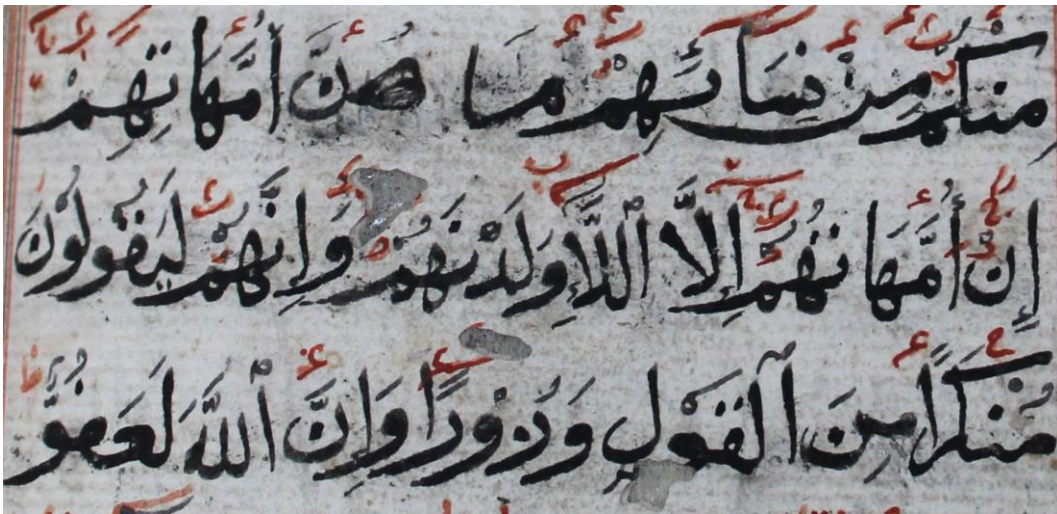 مِنكُم مِن نِسَائِهِمْ مَا هُنَّ أُمَّهَاتِهِمْ
إِنْ أُمَّهَاتُهُمْ إِلَّا اَللَّاءِ وَلَدْنَهُمْ وَإِنَّهُمْ لَيَقُولُونَ
مُنكَرًا مِنَ اَلْقَوْلِ وَزُورًا وَإِنَّ اَللَّهَ لَعَفُوٌّ